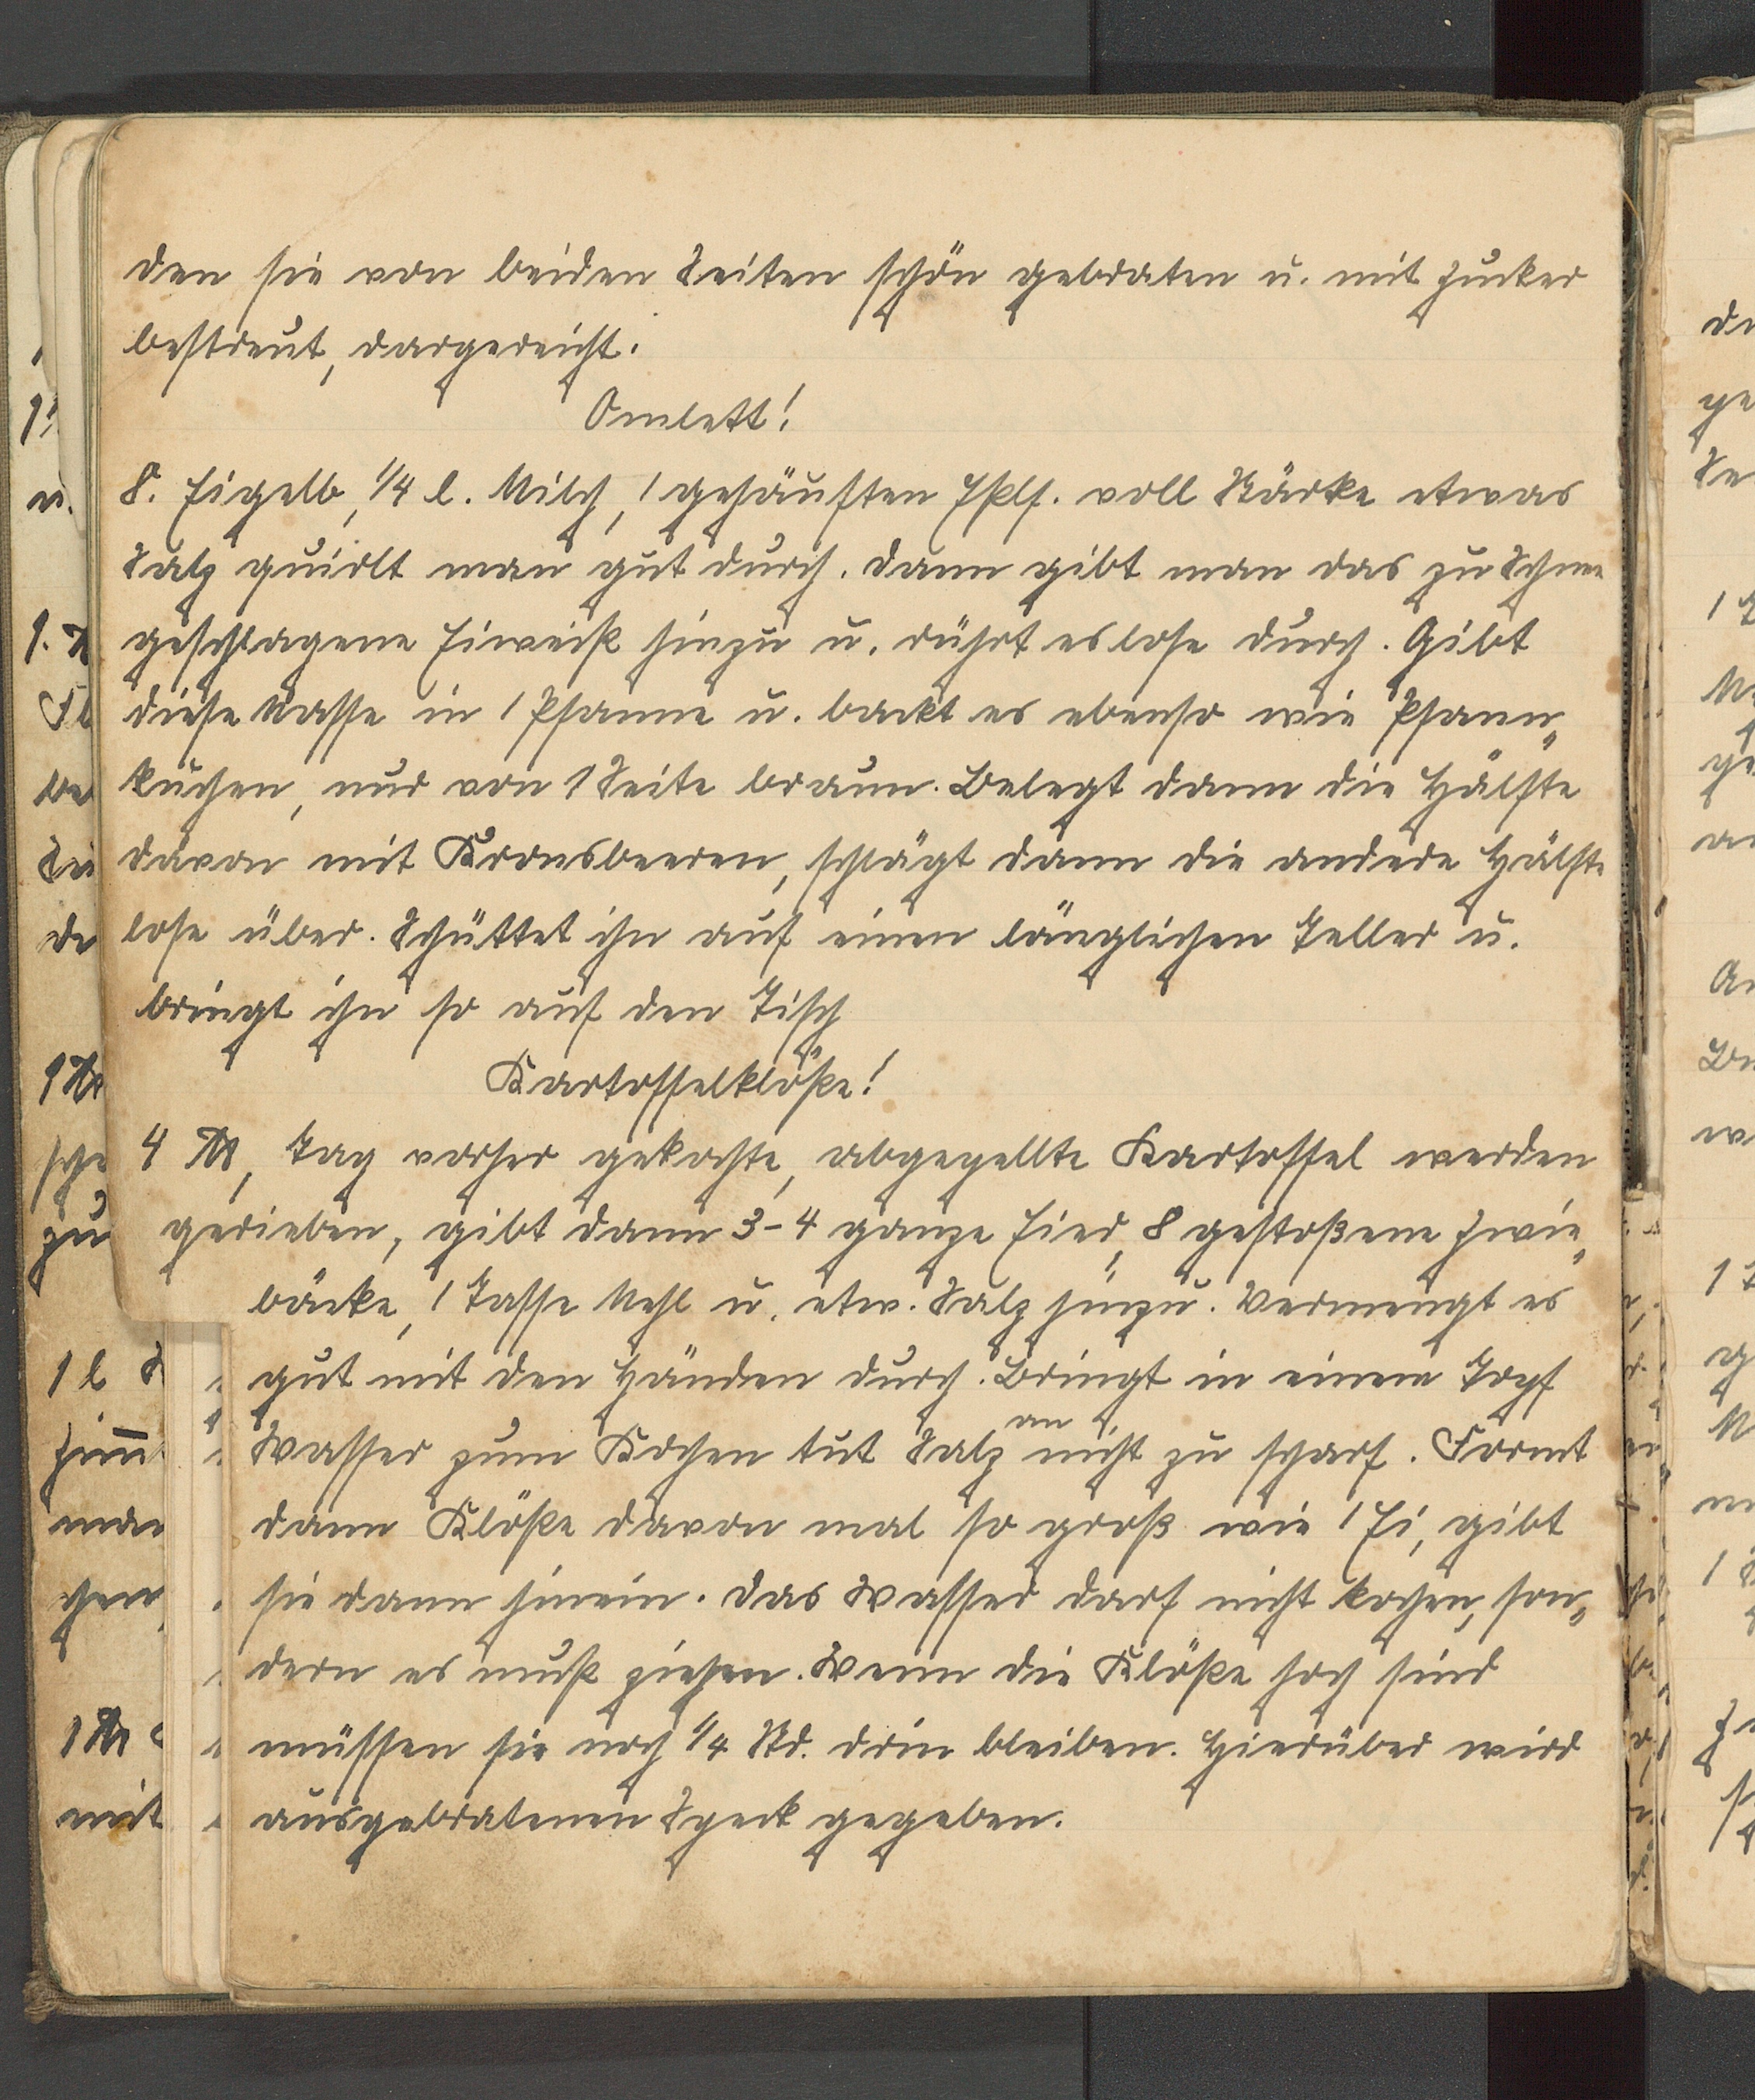 den sie von beiden Seiten schön gebraten u. mit Zucker
bestreut, dargereicht.
Omlett!
8. Eigelb, 1/4 l. Milch, 1 gehäuften Eßlf. voll Stärke etwas
Salz quirlt man gut durch. Dann gibt man das zu Schnee
geschlagene Eiweiß hinzu u. rührt es lose durch. Gibt
diese Masse in 1 Pfanne u. backt es ebenso wie Pfann„
kuchen, nur von 1 Seite braun. Belegt dann die Hälfte
davon mit Kronsbeeren, schlägt dann die andere Hälfte
lose über. Schüttet ihn auf einen länglichen Teller u.
bringt ihn so auf den Tisch
Kartoffelklöße!
4 ℔, Tag vorher gekochte, abgepellte Kartoffel werden
gerieben, gibt dann 3-4 ganze Eier, 8 gestoßene Zwie„
bäcke, 1 Tasse Mehl u. etw. Salz hinzu. Vermengt es
gut mit den Händen durch. Bringt in einem Topf
Wasser zum Kochen tut Salz an nicht zu scharf. Formt
dann Klöße davon mal so groß wie 1 Ei, gibt
sie dann hinein. Das Wasser darf nicht kochen, son„
dern es muß ziehen. Wenn die Klöße hoch sind
müssen sie noch 1/4 Std. drin bleiben. Hierüber wird
ausgebratenen Speck gegeben.